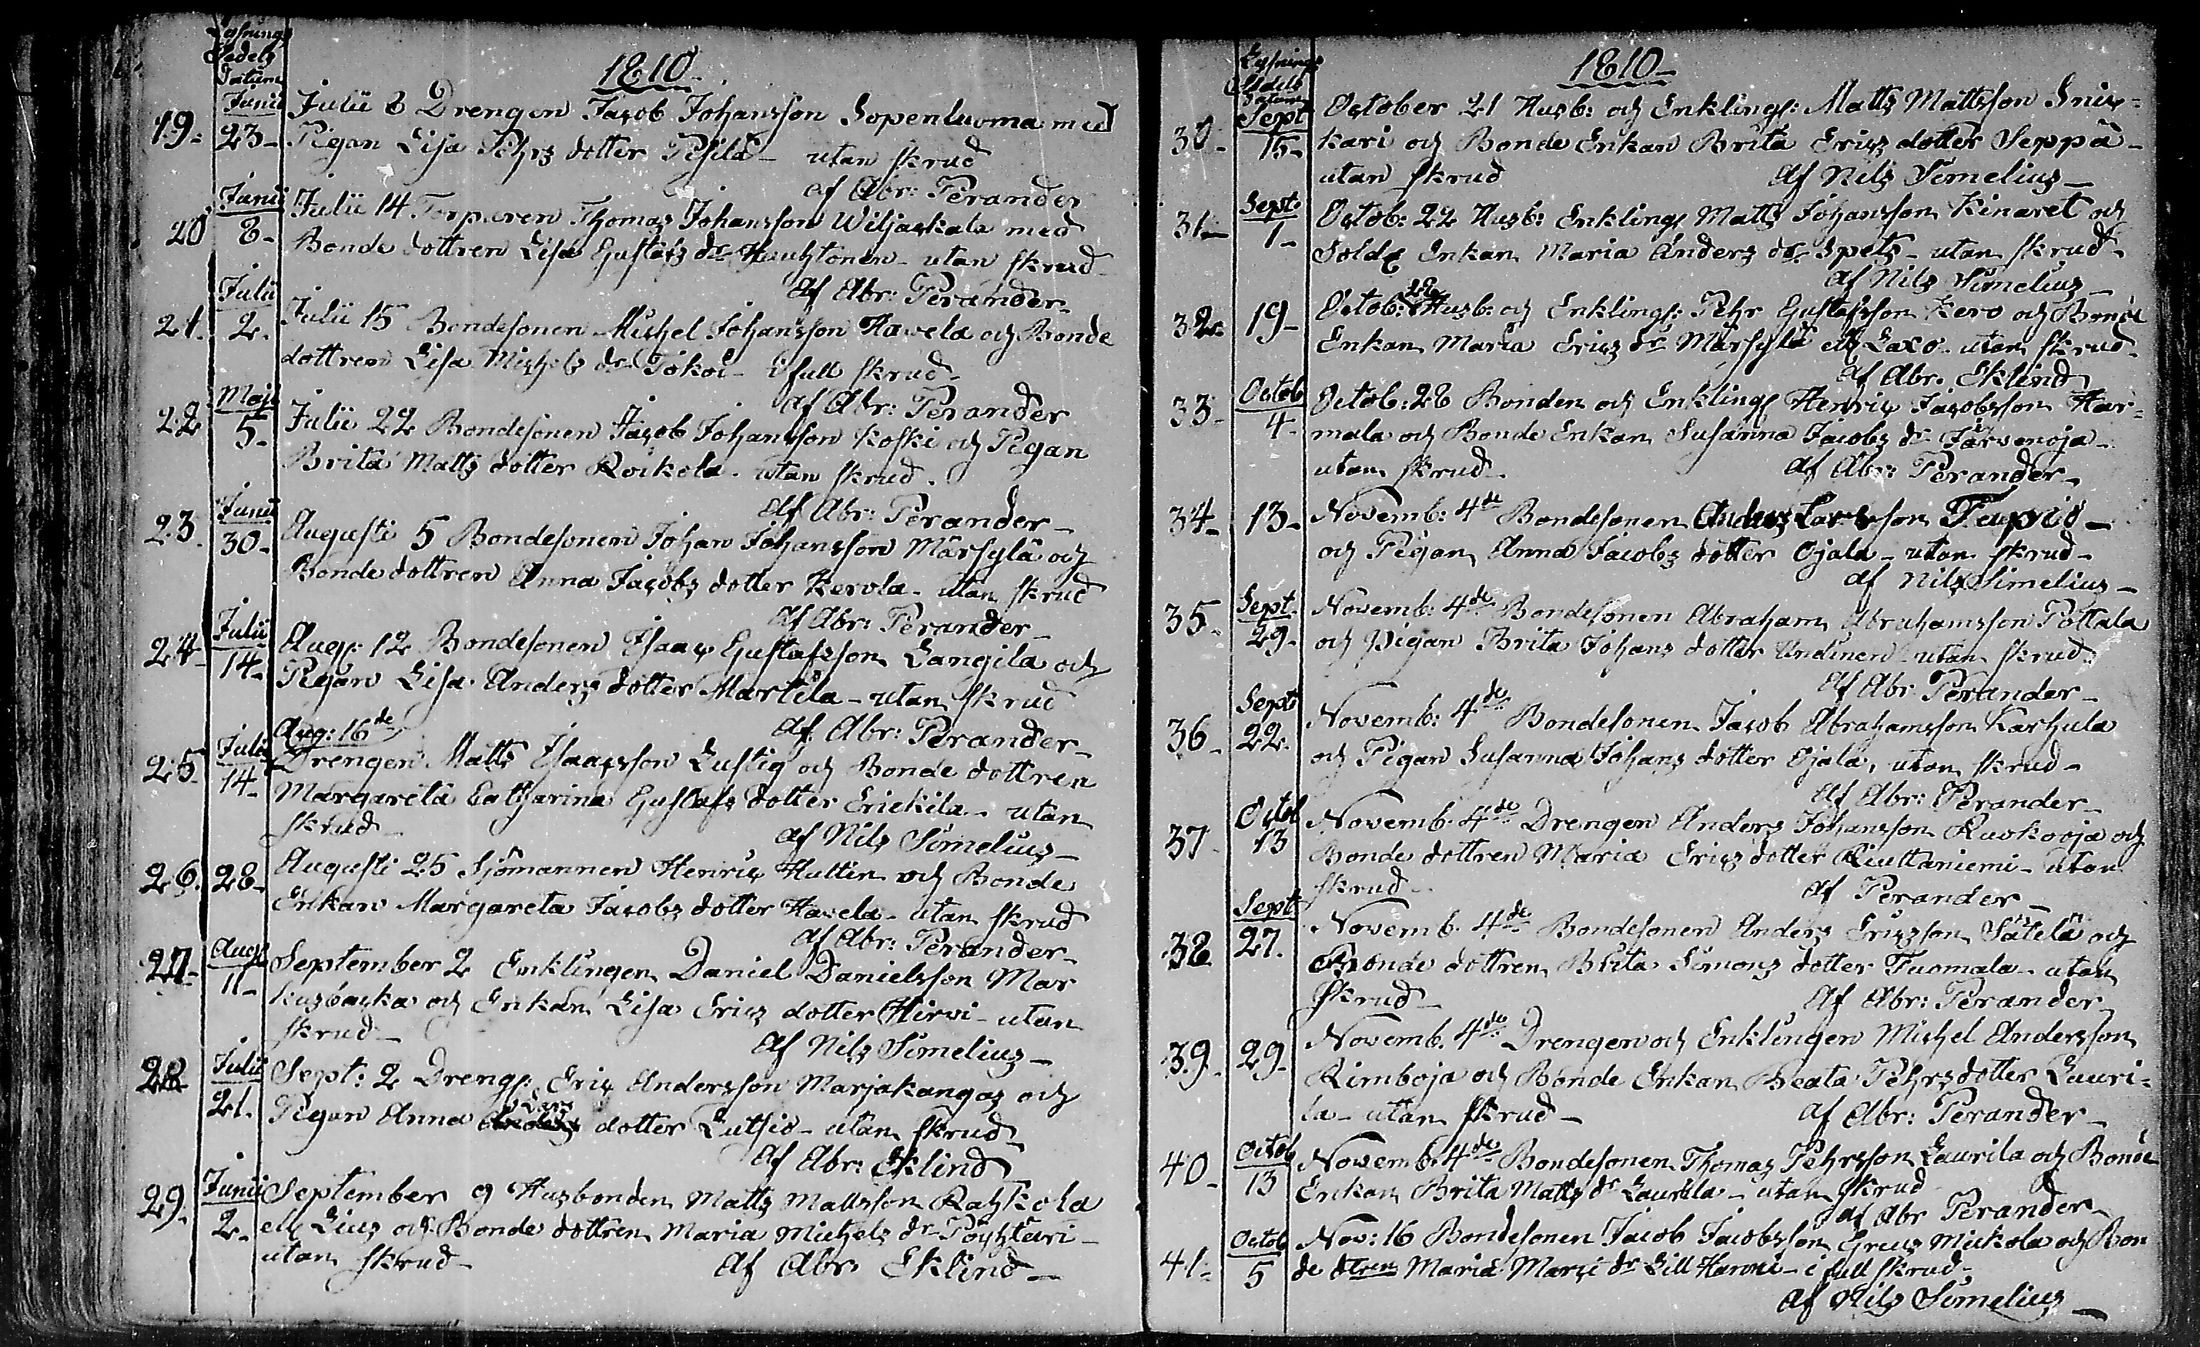 Lysnings
Sedels
datum
1810
19. Junii 23 Julii 8 Drengen Jacob Johansson Sopenluoma med
Pigan Lisa Pehrs dotter Pesilä utan skrud
af Abr: Perander
20 Junii 8 Julii 14 Torparen Thomas Johansson Wiljaskala med
Bonde dottren Lisa Gustafs dr Huuhtonen utan skrud
af Abr: Perander
21. Julii 2. Julii 15 Bondesonen Michel Johansson Havela och Bonde
dottren Lisa Michels dr Jokoi i full skrud
af Abr: Perander
22 Maji 5 Julii 22 Bondesonen Jacob Johansson Koski och Pigan
Brita Matts dotter Roikola utan skrud.
af Abr: Perander
23. Junii 30 Augusti 5 Bondesonen Johan Johansson Märsylä och
Bonde dottren Anna Jacobs dotter Kerola utan skrud
af Abr: Perander
24 Julii 14 Aug: 12 Bondesonen Isaac Gustafsson Langila och
Pigan Lisa Anders dotter Martila utan skrud
af Abr: Perander
Aug: 16de
25 Julii 14 Drengen Matts Isaacsson Lustig och Bonde dottren
Margareta Catharina Gustafs dotter Erickila utan
skrud
af Nils Simelius
26. 28 Augusti 25 Sjömannen Henric Hultin och Bonde
Enkan Margareta Jacobs dotter Havela utan skrud
af Abr: Perander
27 Aug: 11 September 2 Enklingen Daniel Danielsson Mar
kusbacka och Enkan Lisa Erics dotter Hirvi utan
skrud
af Nils Simelius
28 Julii 21. Sept: 2 Dreng: Eric Andersson Marjakangas och
Pigan Anna Lars dotter Luthio utan skrud
af Abr: Eklind
29. Junii 2 September 9 Husbonden Matts Mattsson Rahkola
ell Lius och Bonde dottren Maria Michels dr Pöyhtäri
utan skrud
af Abr: Eklind
Lysnings
Sedels
datum
1810
30 Sept 15 October 21 Husb: och Enkling: Matts Mattsson Snic-
kari och Bonde Enkan Brita Erics dotter Seppä
utan skrud
af Nils Simelius
31 Sept: 1 Octob: 22 Husb: Enkling Matts Johansson Kinaret och
Sold: Enkan Maria Anders dr Spets utan skrud
af Nils Simelius
32 19 Octob: 28 Husb: och Enkling: Pehr Gustafsson Kero och Bonde
Enkan Maria Erics dr Märsylä ell Laxo utan skrud
af Abr. Eklind
33 Octob 4 Octob: 28 Bonden och Enkling Henric Jacobsson Har-
mala och Bonde Enkan Susanna Jacobs dr Järvenoja
utan skrud
af Abr: Perander
34 13 Novemb: 4de Bondesonen Anders Larsson Tuuprio
och Pigan Anna Jacobs dotter Ojala utan skrud
af Nils Simelius
35 Sept. 29 Novemb: 4de Bondesonen Abraham Abrahamsson Pottala
och Pigan Brita Johans dotter Undinen utan skrud
af Abr Perander
36 Sept: 22 Novemb: 4de Bondesonen Jacob Abrahamsson Karhula
och Pigan Susanna Johans dotter Ojala, utan skrud
af Abr: Perander
37 Octob 13 Novemb. 4de Drengen Anders Johansson Ruokooja och
Bonde dottren Maria Erics dotter Riuttaniemi utan
skrud
af Perander
38 Sept: 27. Novemb. 4de Bondesonen Anders Ericsson Sätelä och
Bonde dottren Brita Simons dotter Tuomala utan
skrud
af Abr: Perander
39 29 Novemb. 4de Drengen och Enklingen Michel Andersson
Rimboja och Bonde Enkan Beata Pehrs dotter Lauri-
la utan skrud
af Abr: Perander
40 Octob 13 Novemb: 4de Bondesonen Thomas Pehrsson Laurila och Bonde
Enkan Brita Matts dr Laurila utan skrud
af Abr Perander
41 Octob 5 Nov: 16 Bondesonen Jacob Jacobsson Greus Mickola och Bon
de dtren Maria Marci dr Lill Hanni i full skrud
af Nils Simelius